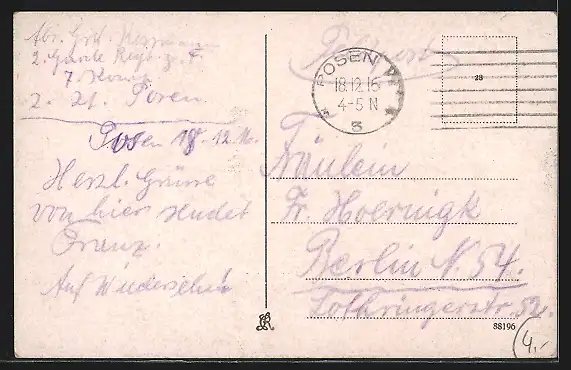 2. Garde Regt. z. F.
7. Komp.
z. Zt. Posen.
Posen 18.12.16.
Herzl. Grüsse
von hier sendet
Franz.
Auf Wiedersehen
Feldpost
POSEN
18.12.16
4-5 N
3
28
Fräulein
Fr. Hoernigk
Berlin N. 54.
Lothringerstr. 52.
88196
4,-